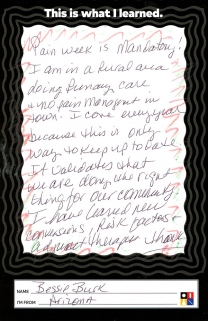 This is what I learned.
Pain week is Mandatory!
I am in a Rural area
doing Primary care
and pain Managment in
town. I come every year
because this is only
way to keep up to date
It validates that
we are doing the right
thing for our community
I have learned new
conversions, Risk factors &
adjuvant therapies thank
NAME Bessie Burk
I'M FROM Arizona